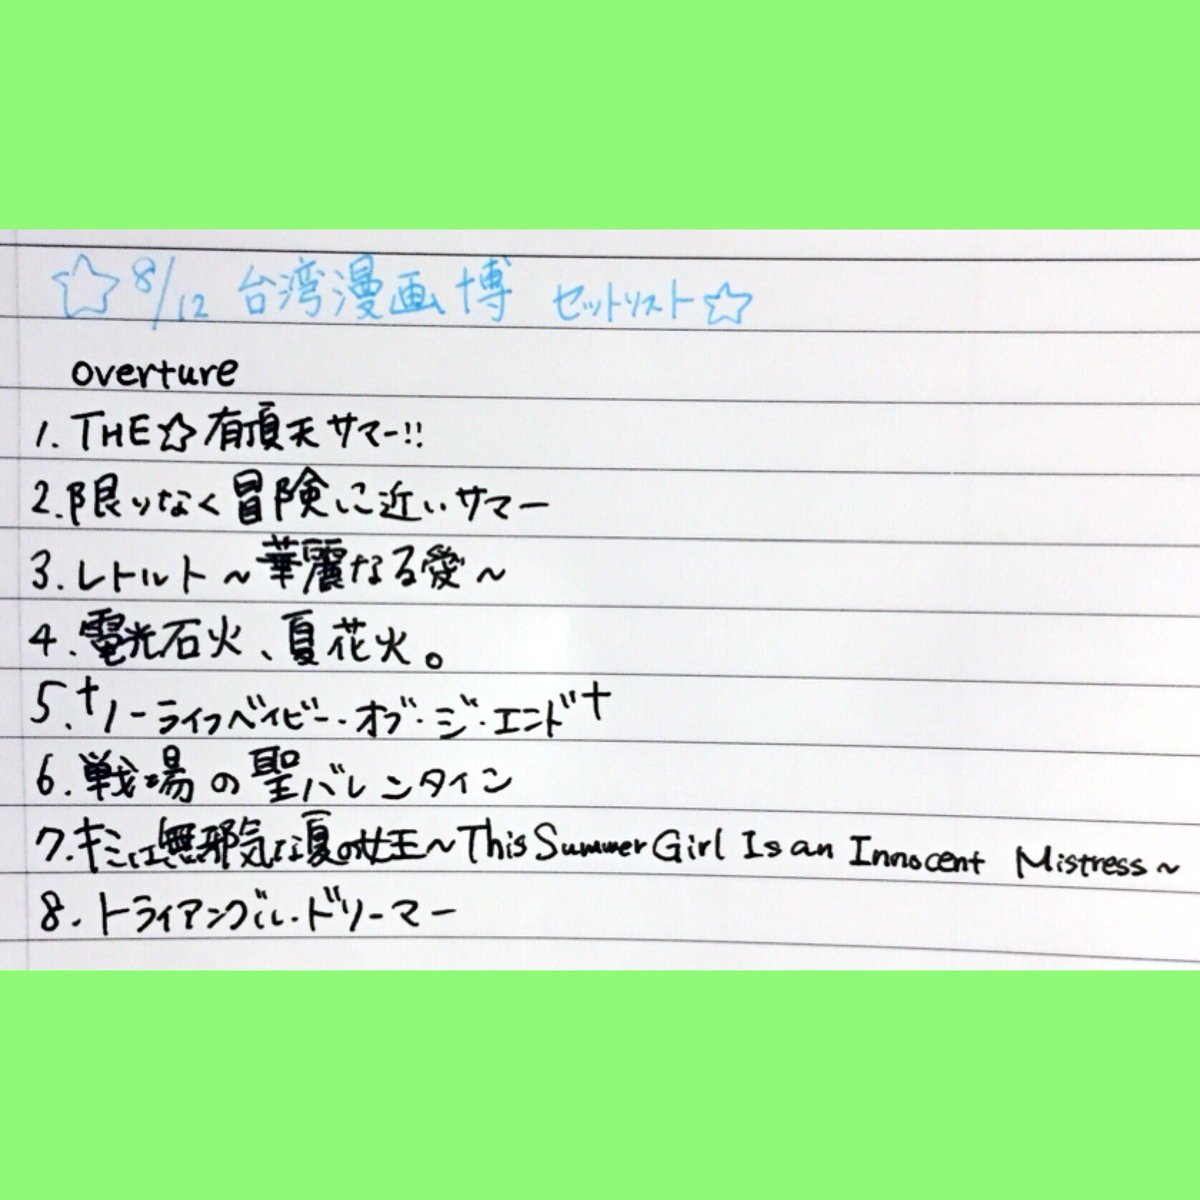 ☆8/12 台湾漫画博 セットリスト☆
overture
1. THE☆有頂天サマー!!
2. 限りなく冒険に近いサマー
3. レトルト～華麗なる愛～
4. 電光石火、夏花火。
5. †ノーライフベイビー・オブ・ジ・エンド†
6. 戦場の聖バレンタイン
7. キミは無邪気な夏の女王～This Summer Girl Is an Innocent Mistress～
8. トライアングル・ドリーマー